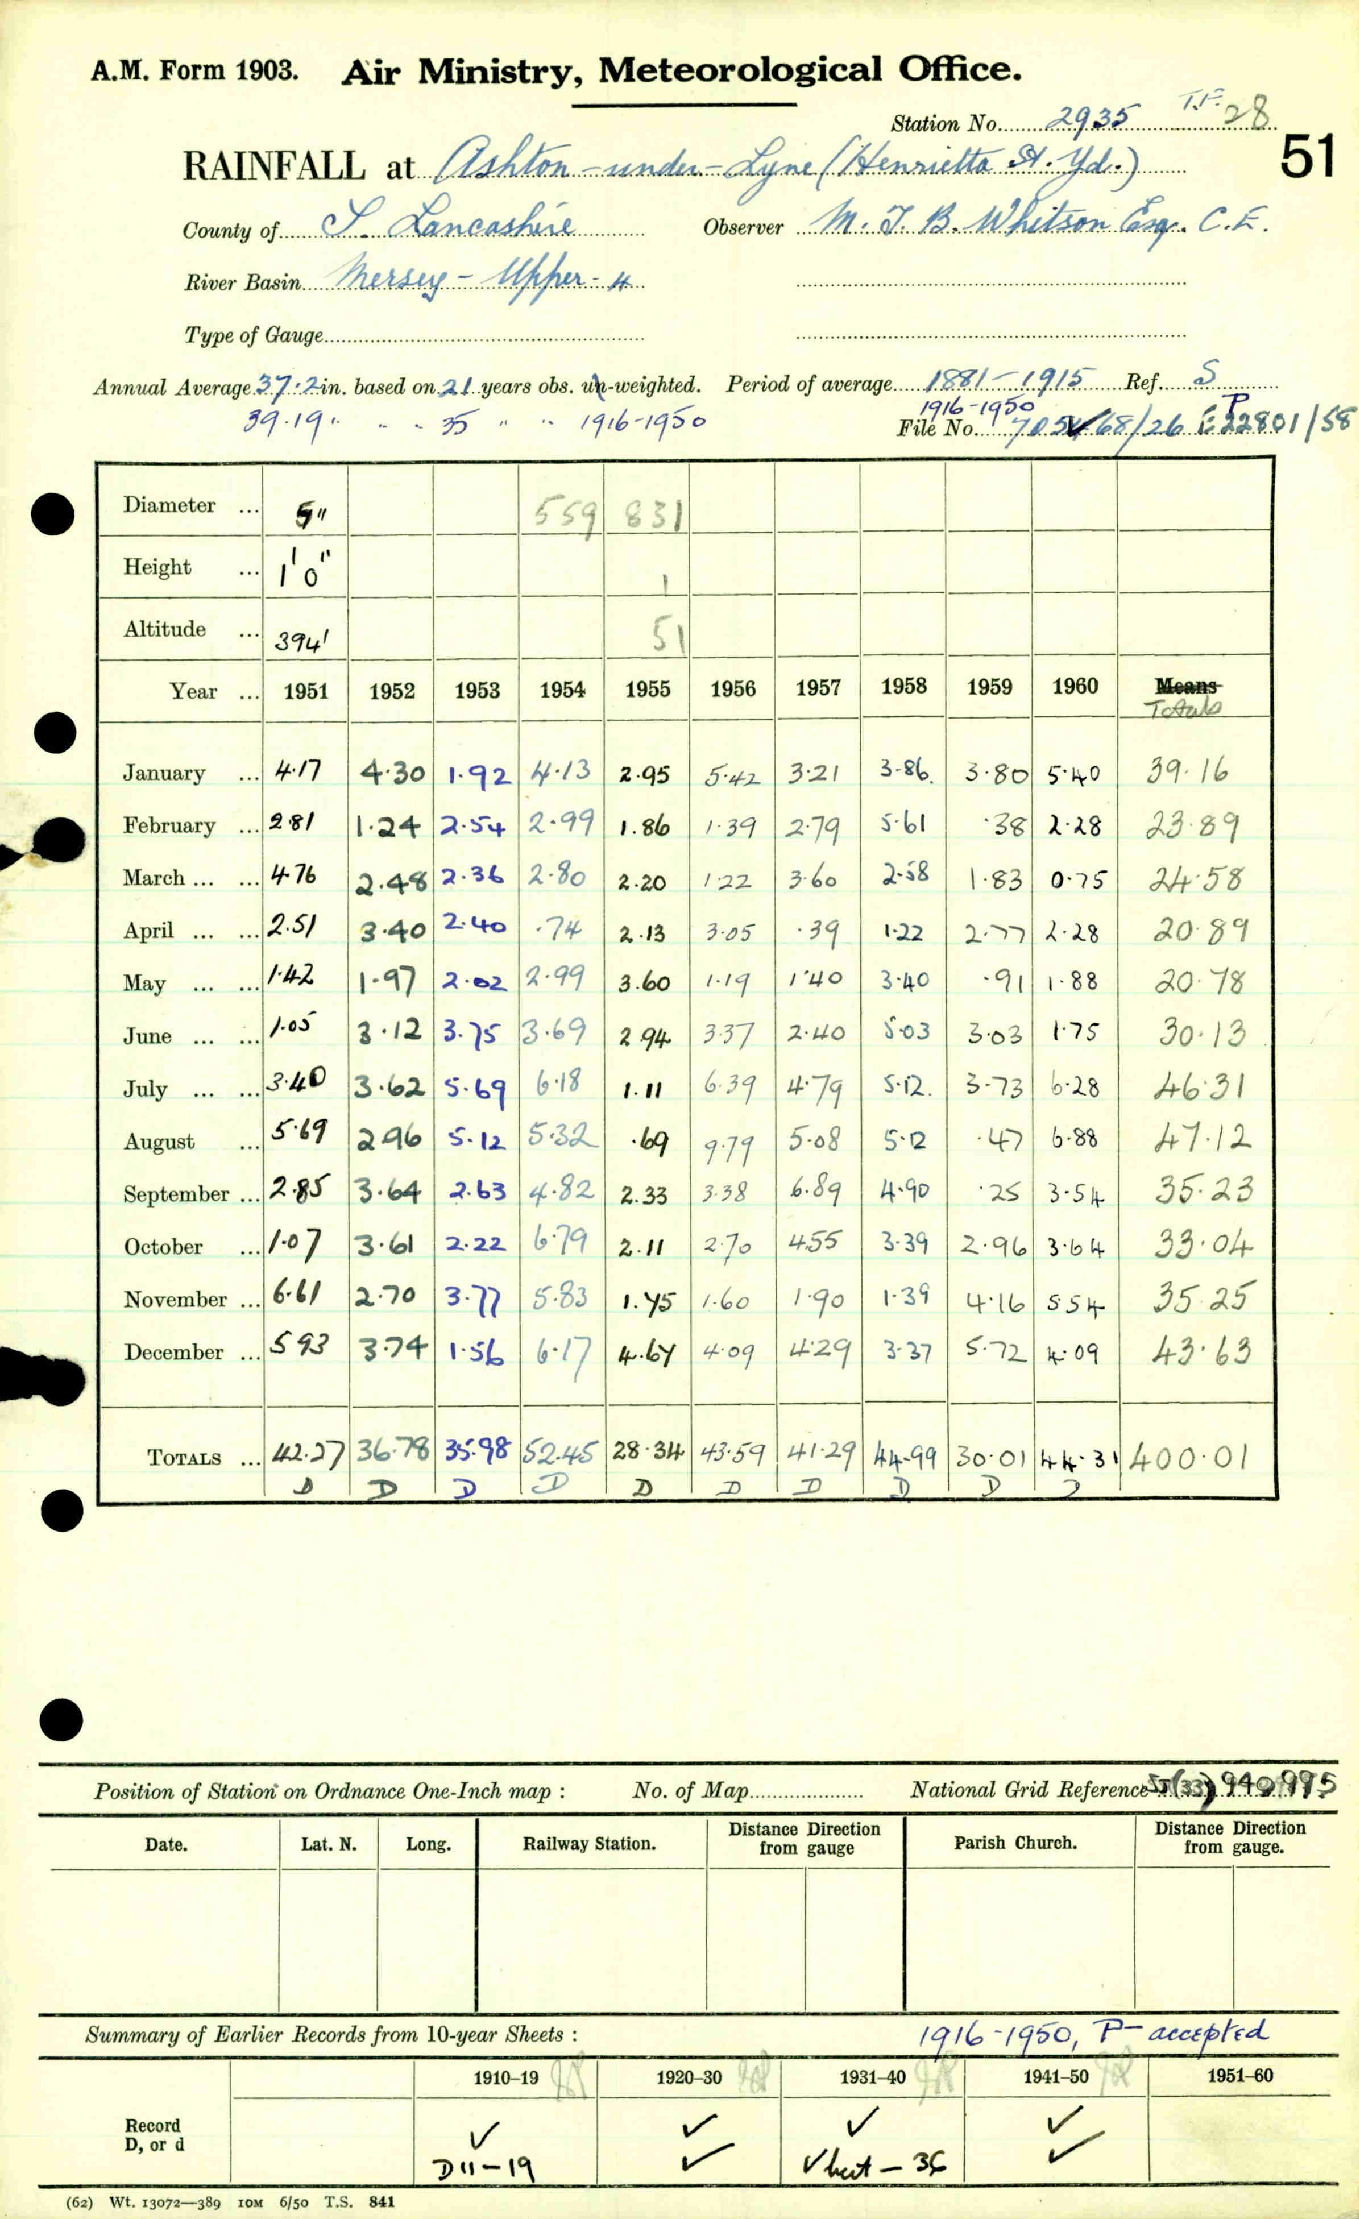 A.M. Form 1903. Air Ministry, Meteorological Office.
Station No. 2935 T.F. 28
51
RAINFALL at Ashton-under-Lyne (Henrietta St. Yd.)
County of S. Lancashire Observer M. J. B. Whitson Esq. C.E.
River Basin Mersey - Upper - 4
Type of Gauge
Annual Average 37.2 in. based on 21 years obs. un-weighted. Period of average 1881-1915 Ref. S
39.19 " " " 35 " " 1916-1950 1916-1950 P
File No. 7054/68/26 E 22801/58
Diameter ... 5" 559 831
Height ... 1' 0" 1
Altitude ... 394' 51
Year ... 1951 1952 1953 1954 1955 1956 1957 1958 1959 1960 Means
Totals
January ... 4.17 4.30 1.92 4.13 2.95 5.42 3.21 3.86 3.80 5.40 39.16
February ... 2.81 1.24 2.54 2.99 1.86 1.39 2.79 5.61 .38 2.28 23.89
March ... ... 4.76 2.48 2.36 2.80 2.20 1.22 3.60 2.58 1.83 0.75 24.58
April ... ... 2.51 3.40 2.40 .74 2.13 3.05 .39 1.22 2.77 2.28 20.89
May ... ... 1.42 1.97 2.02 2.99 3.60 1.19 1.40 3.40 .91 1.88 20.78
June ... ... 1.05 3.12 3.75 3.69 2.94 3.37 2.40 5.03 3.03 1.75 30.13
July ... ... 3.40 3.62 5.69 6.18 1.11 6.39 4.79 5.12 3.73 6.28 46.31
August ... 5.69 2.96 5.12 5.32 .69 9.79 5.08 5.12 .47 6.88 47.12
September ... 2.85 3.64 2.63 4.82 2.33 3.38 6.89 4.90 .25 3.54 35.23
October ... 1.07 3.61 2.22 6.79 2.11 2.70 4.55 3.39 2.96 3.64 33.04
November ... 6.61 2.70 3.77 5.83 1.75 1.60 1.90 1.39 4.16 5.54 35.25
December ... 5.93 3.74 1.56 6.17 4.67 4.09 4.29 3.37 5.72 4.09 43.63
TOTALS ... 42.27 36.78 35.98 52.45 28.34 43.59 41.29 44.99 30.01 44.31 400.01
D D D D D D D D D D
Position of Station on Ordnance One-Inch map : No. of Map National Grid Reference SJ (33) 940 995
Date. Lat. N. Long. Railway Station. Distance from Direction gauge Parish Church. Distance from Direction gauge.
Summary of Earlier Records from 10-year Sheets : 1916-1950, P- accepted
1910–19 1920–30 1931–40 1941–50 1951–60
Record D, or d ✓ ✓ ✓ ✓
D 11 - 19 ✓ ✓ but - 36 ✓
(62) Wt. 13072—389 10M 6/50 T.S. 841